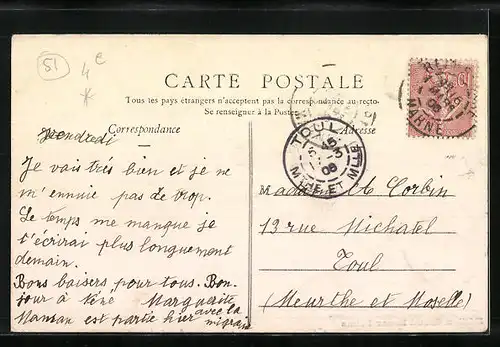 51
4 e
*
CARTE POSTALE
Tous les pays étrangers n'acceptent pas la correspondance au recto.
Se renseigner à la Poste
Correspondance
Adresse
Vendredi
Je vais très bien et je ne
m'ennuie pas de trop.
Le temps me manque je
t'écrirai plus longuement
demain.
Bons baisers pour tous. Bon-
jour à téné Marguerite
Maman est partie hier avec la
TOUL
MTHE ET MLLE
MARNE
Madame Corbin
13 rue Michatel
Toul
(Meurthe et Moselle)